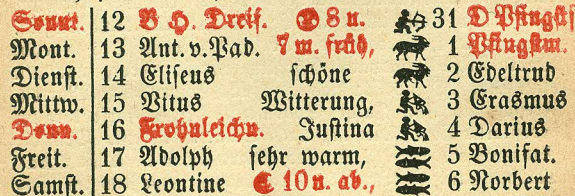 Sonnt. 12 B H. Dreif. 8 n. 31 D Pfingstf
Mont. 13 Ant. v. Pad. 7 m. früh, 1 Pfingstm.
Dienst. 14 Eliseus schöne 2 Edeltrud
Mittw. 15 Vitus Witterung, 3 Erasmus
Donn. 16 Frohnleichn. Justina 4 Darius
Freit. 17 Adolph sehr warm, 5 Bonifat.
Samst. 18 Leontine 10 n. ab., 6 Norbert